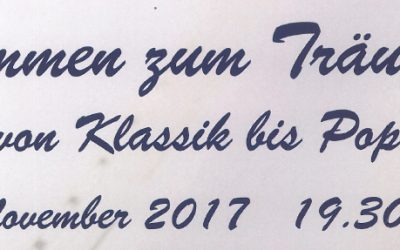 mmen zum Träu
von Klassik bis Pop
November 2017 19.30